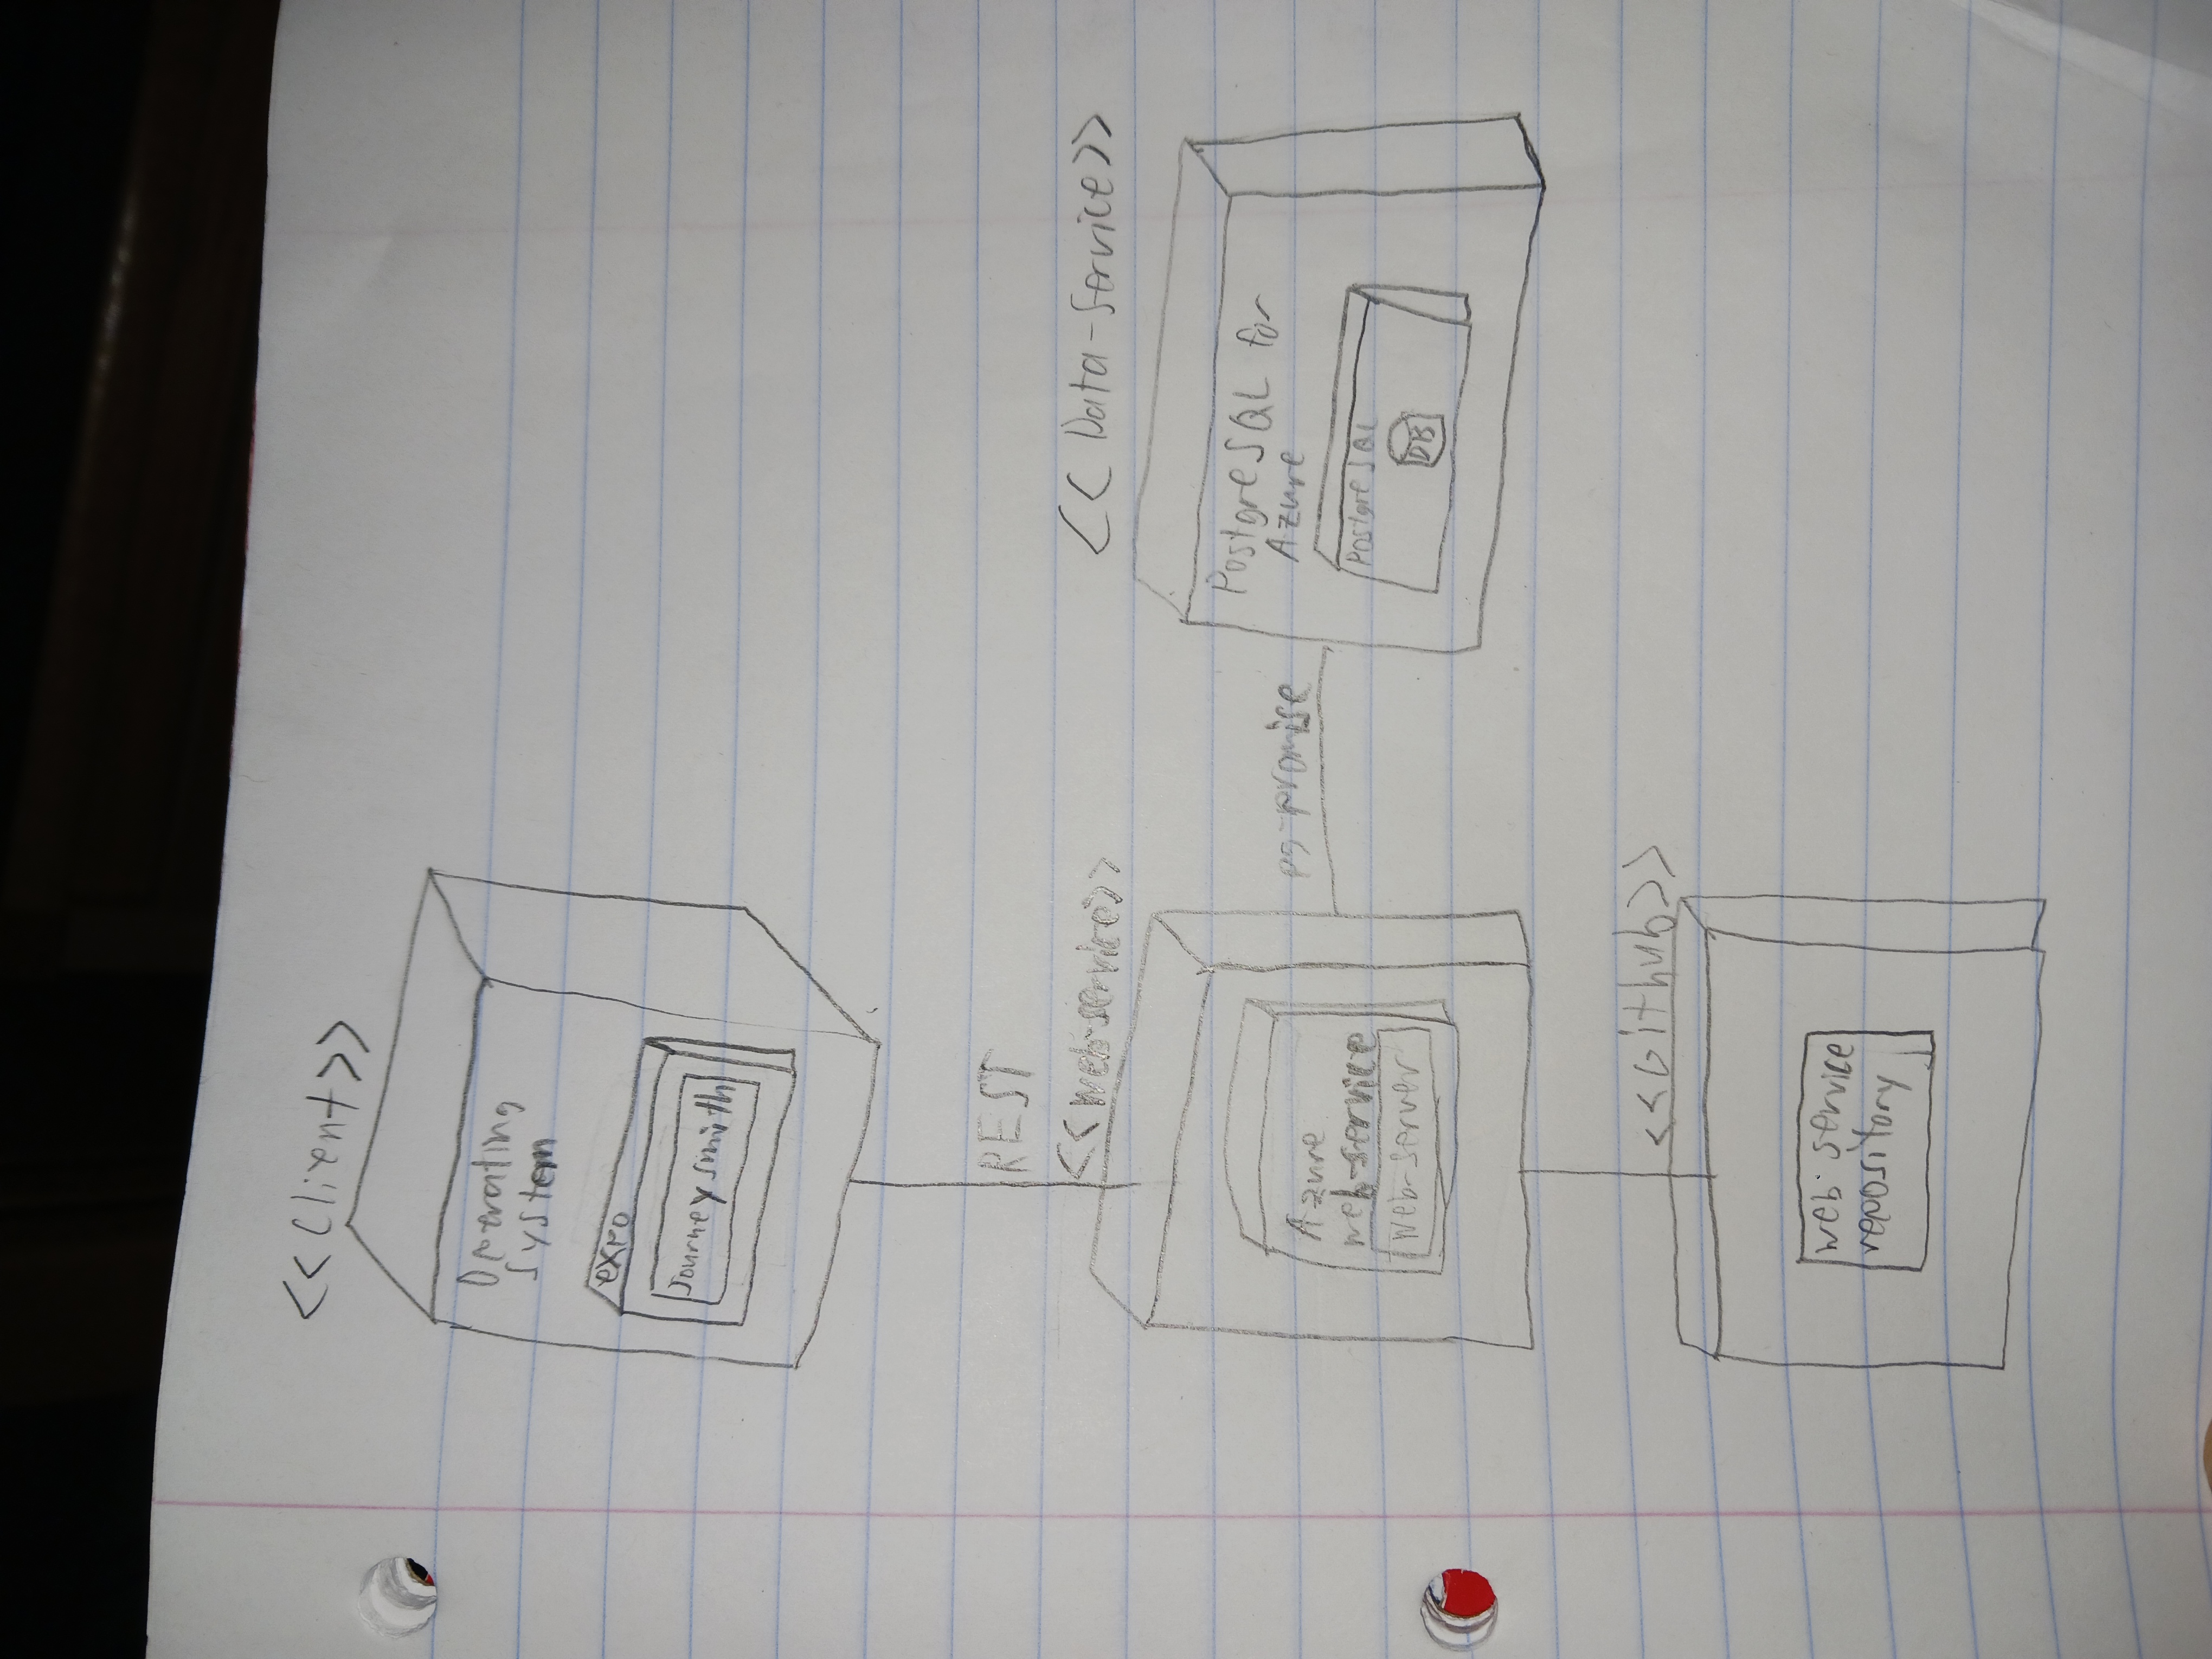 <<Client>>
Operating
System
expo
Journey smith
REST
<<Web-service>>
<<Data-Service>>
Azure
web-service
Web-server
pg-promise
PostgreSQL for
Azure
PostgreSQL
DB
<<Github>>
web service
repository